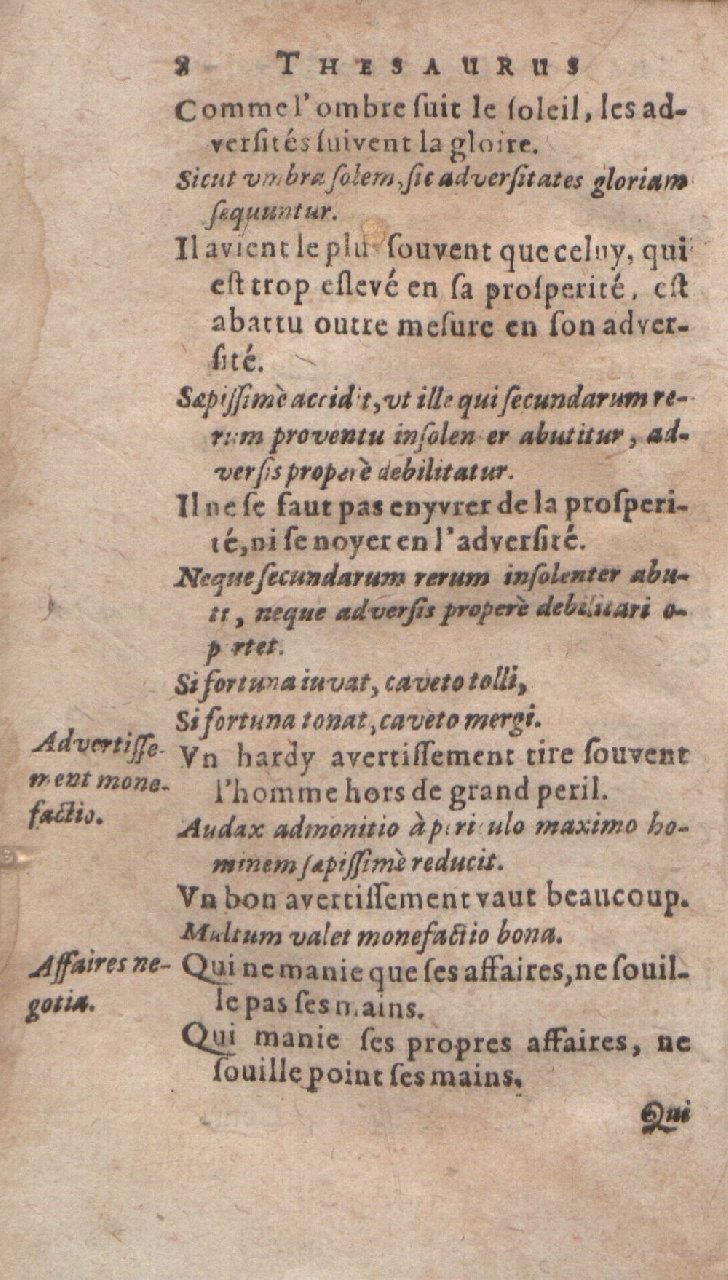 8 THESAURUS
Comme l'ombre ſuit le ſoleil, les ad-
verſités ſuivent la gloire.
Sicut vmbra ſolem, ſic adverſitates gloriam
ſequuntur.
Il avient le plu ſouvent que celuy, qui
eſt trop eſlevé en ſa proſperité, eſt
abattu outre meſure en ſon adver-
ſité.
Sæpiſſimè accidit, vt ille qui ſecundarum re-
rum proventu inſolen er abutitur, ad-
verſis properè debilitatur.
Il ne ſe faut pas enyvrer de la proſperi-
té, ni ſe noyer en l'adverſité.
Neque ſecundarum rerum inſolenter abu-
ti, neque adverſis properè debilitari o-
p rtet.
Si fortuna iuvat, caveto tolli,
Si fortuna tonat, caveto mergi.
Advertiſſe-
ment mone-
factio.
Vn hardy avertiſſement tire ſouvent
l'homme hors de grand peril.
Audax admonitio à periculo maximo ho-
minem ſæpiſſimè reducit.
Vn bon avertiſſement vaut beaucoup.
Multum valet monefactio bona.
Affaires ne-
gotia.
Qui ne manie que ſes affaires, ne ſouil-
le pas ſes mains.
Qui manie ſes propres affaires, ne
ſouille point ſes mains.
Qui